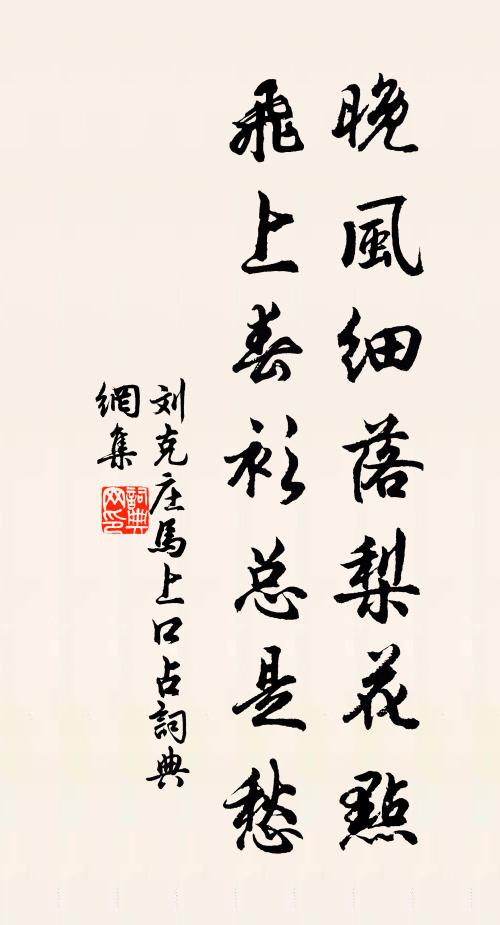 晚風細落梨花點
飛上春衫总是愁
刘克庄馬上口占詞典
網集
詞典
网印